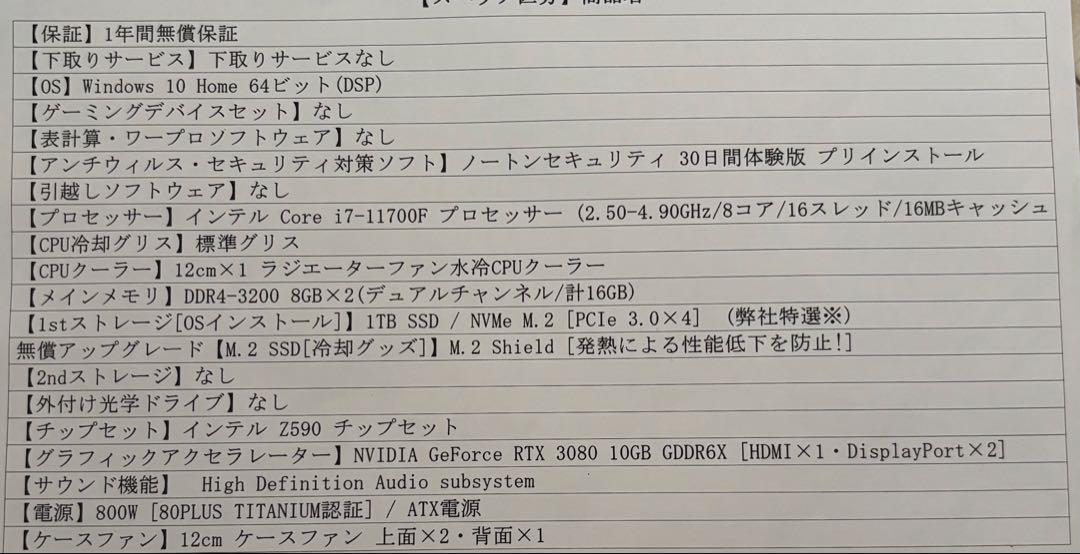 【保証】1年間無償保証
【下取りサービス】下取りサービスなし
【OS】Windows 10 Home 64ビット(DSP)
【ゲーミングデバイスセット】なし
【表計算・ワープロソフトウェア】なし
【アンチウィルス・セキュリティ対策ソフト】ノートンセキュリティ 30日間体験版 プリインストール
【引越しソフトウェア】なし
【プロセッサー】インテル Core i7-11700F プロセッサー (2.50-4.90GHz/8コア/16スレッド/16MBキャッシュ
【CPU冷却グリス】標準グリス
【CPUクーラー】12cm×1 ラジエーターファン水冷CPUクーラー
【メインメモリ】DDR4-3200 8GB×2(デュアルチャンネル/計16GB)
【1stストレージ[OSインストール]】1TB SSD / NVMe M.2 [PCIe 3.0×4] (弊社特選※)
無償アップグレード【M.2 SSD[冷却グッズ]】M.2 Shield [発熱による性能低下を防止!]
【2ndストレージ】なし
【外付け光学ドライブ】なし
【チップセット】インテル Z590 チップセット
【グラフィックアクセラレーター】NVIDIA GeForce RTX 3080 10GB GDDR6X [HDMI×1・DisplayPort×2]
【サウンド機能】 High Definition Audio subsystem
【電源】800W [80PLUS TITANIUM認証] / ATX電源
【ケースファン】12cm ケースファン 上面×2・背面×1